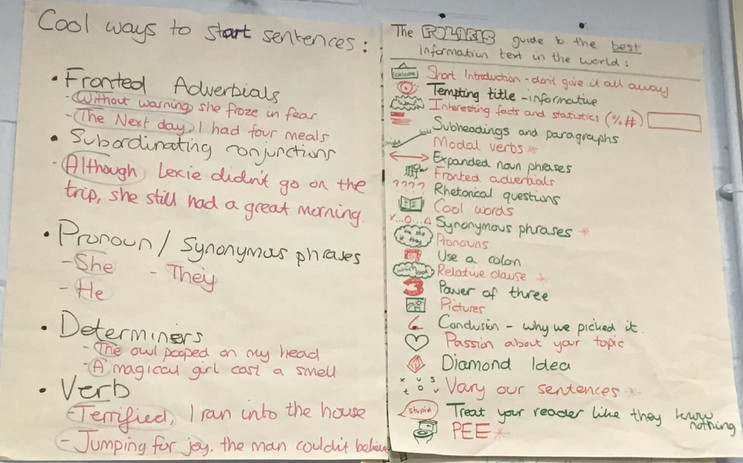 Cool ways to start sentences:
• Fronted Adverbials
- Without warning, she froze in fear
- The Next day, I had four meals
• Subordinating conjunctions
- Although Lexie didn't go on the
trip, she still had a great morning.
• Pronoun / Synonymous phrases
- She - They
- He
• Determiners
- The owl pooped on my head
- A magical girl cast a smell
• Verb
- Terrified, I ran into the house
- Jumping for joy, the man couldn't
The POLARIS guide to the best
information text in the world:
Short Introduction - don't give it all away
Tempting title - informative
Interesting facts and statistics (%#)
Subheadings and paragraphs
Modal verbs
Expanded noun phrases
Fronted adverbials
???? Rhetorical questions
Cool words
Synonymous phrases
Pronouns
Use a colon
Relative clause
3 Power of three
Pictures
Conclusion - why we picked it.
Passion about your topic
Diamond Idea
Vary our sentences
stupid Treat your reader like they know
nothing
PEE